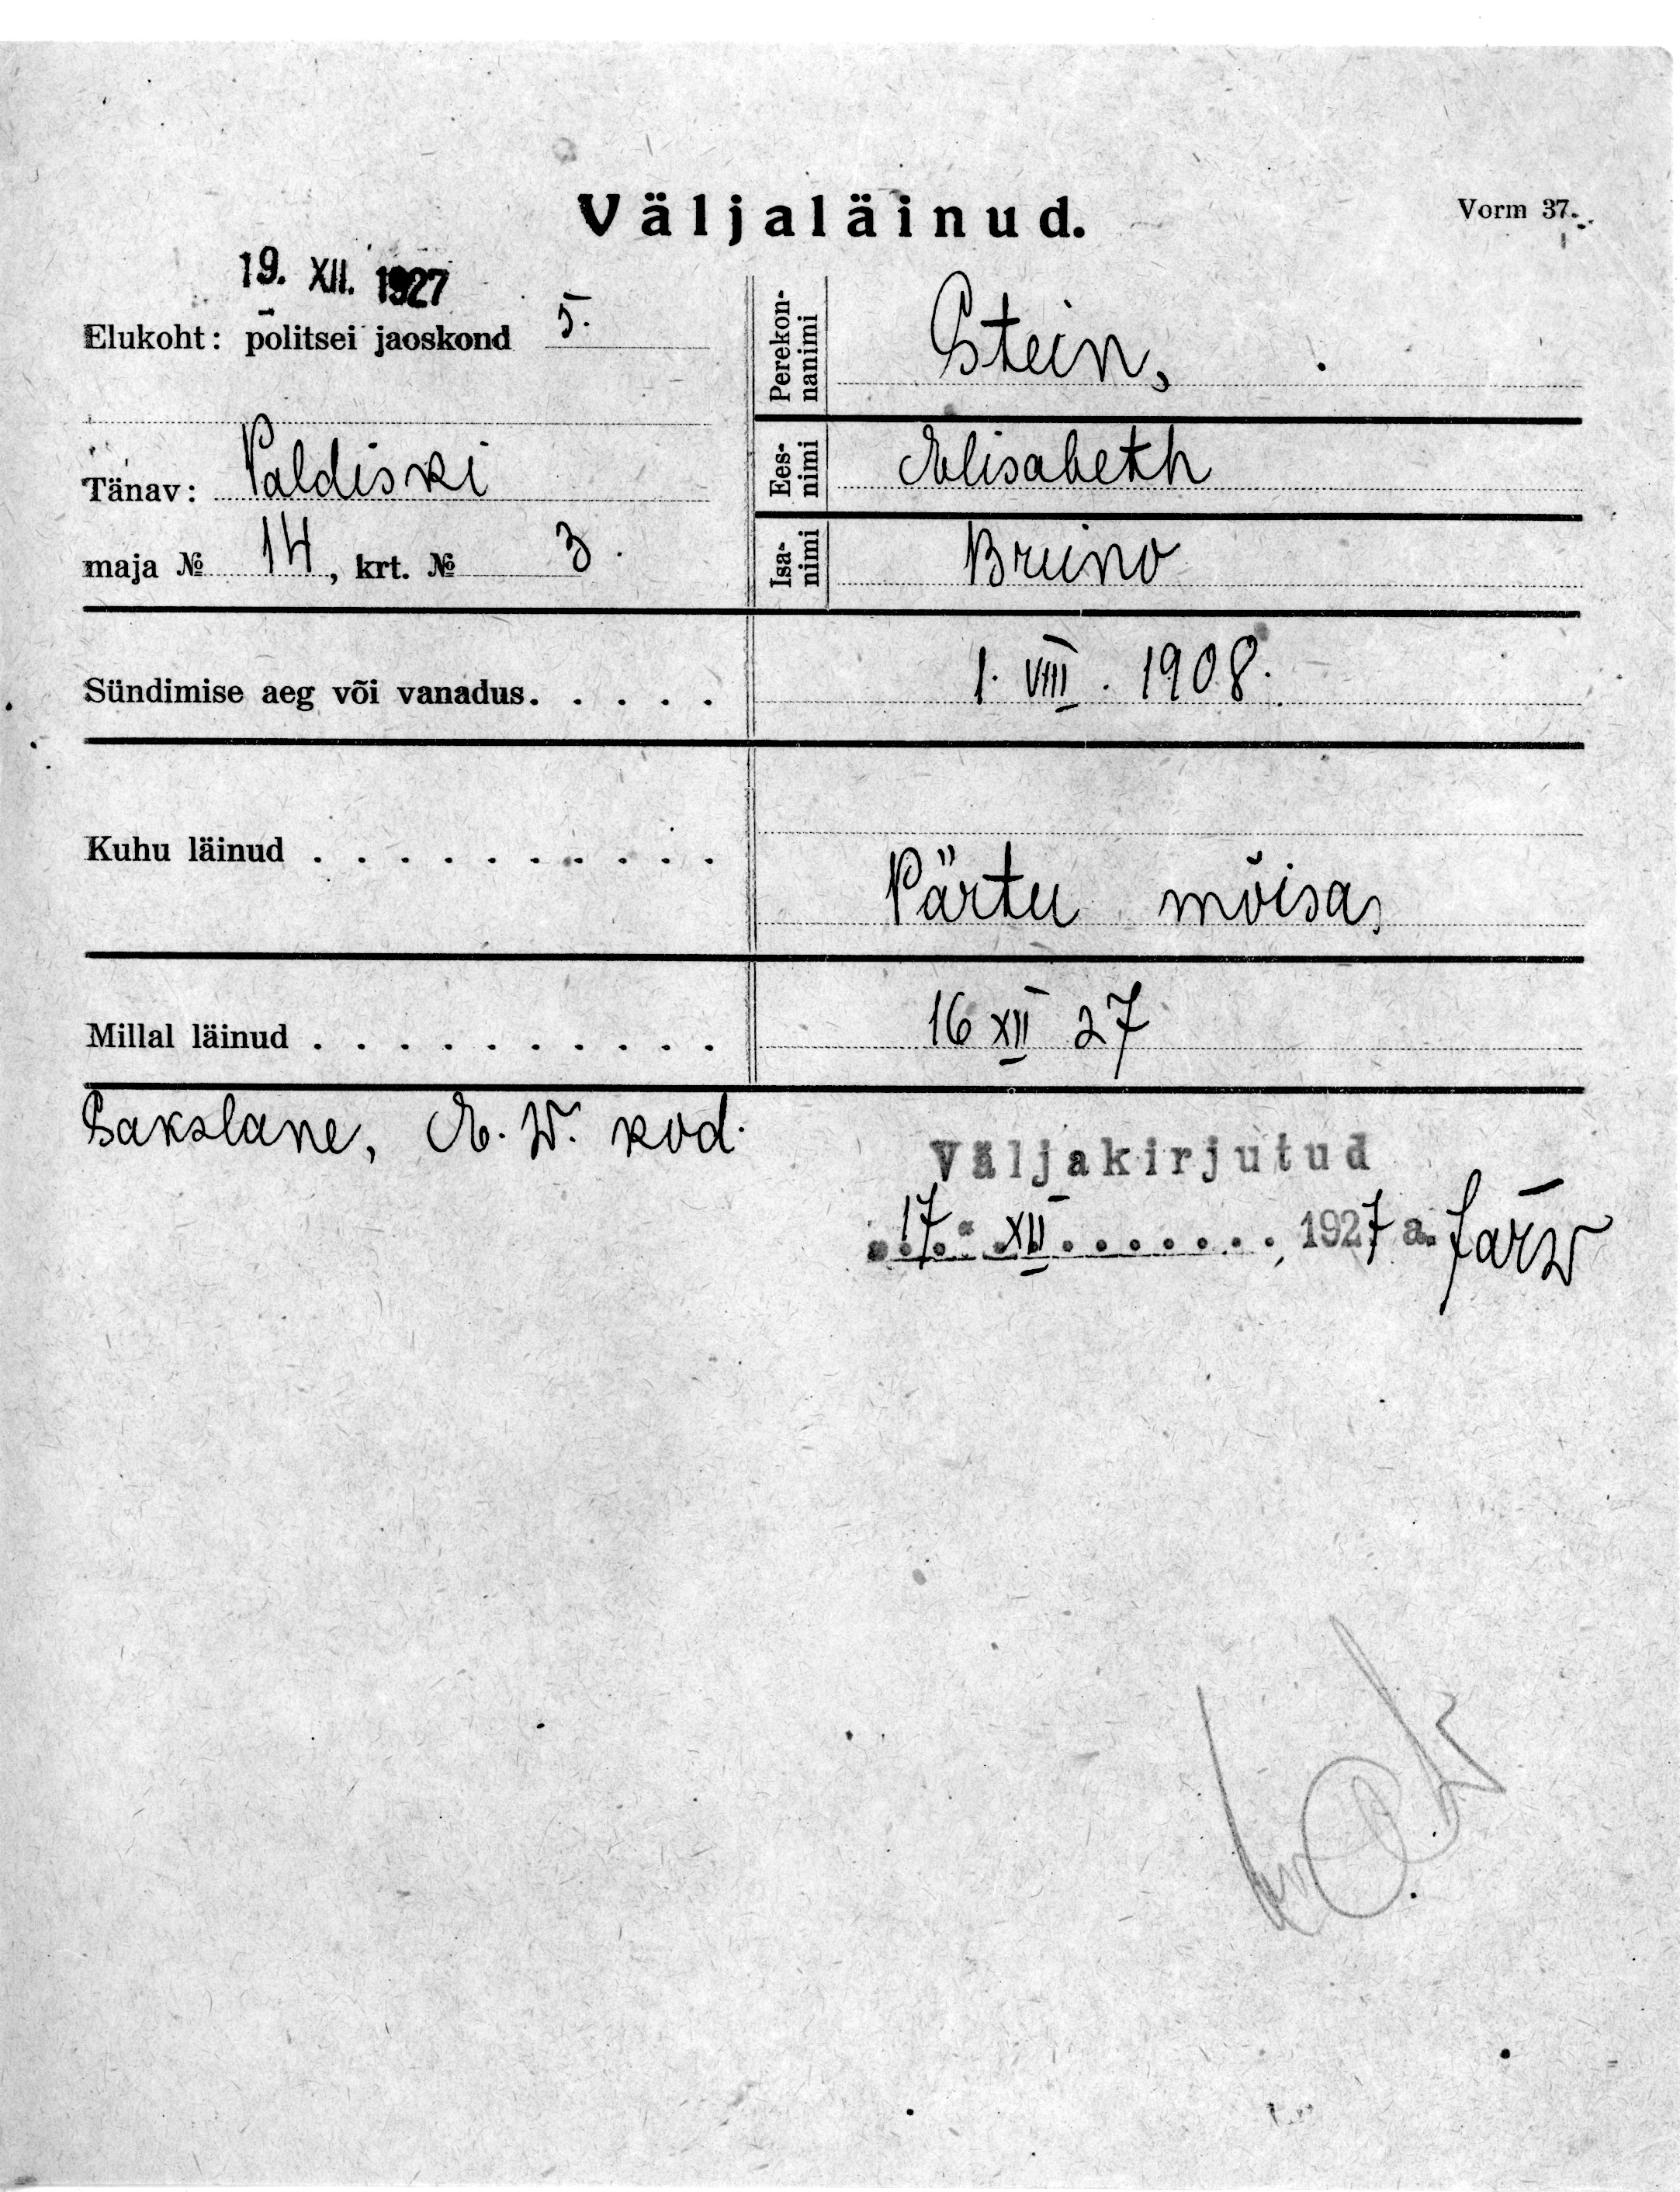 Väljaläinud.
Vorm 37.
19. XII. 1927
Elukoht: politsei jaoskond 5.
Tänav: Paldiski
maja № 14, krt. № 3.
Perekon-
nanimi
Stein,
Ees-
nimi
Elisabeth
Isa-
nimi
Bruno
Sündimise aeg või vanadus. . . . . 1. VIII. 1908.
Kuhu läinud . . . . . . . . . . Pärtu mõisa,
Millal läinud . . . . . . . . . . 16 XII 27
Sakslane, E. W. kod.
Väljakirjutud
17. XII 1927 a. Järw